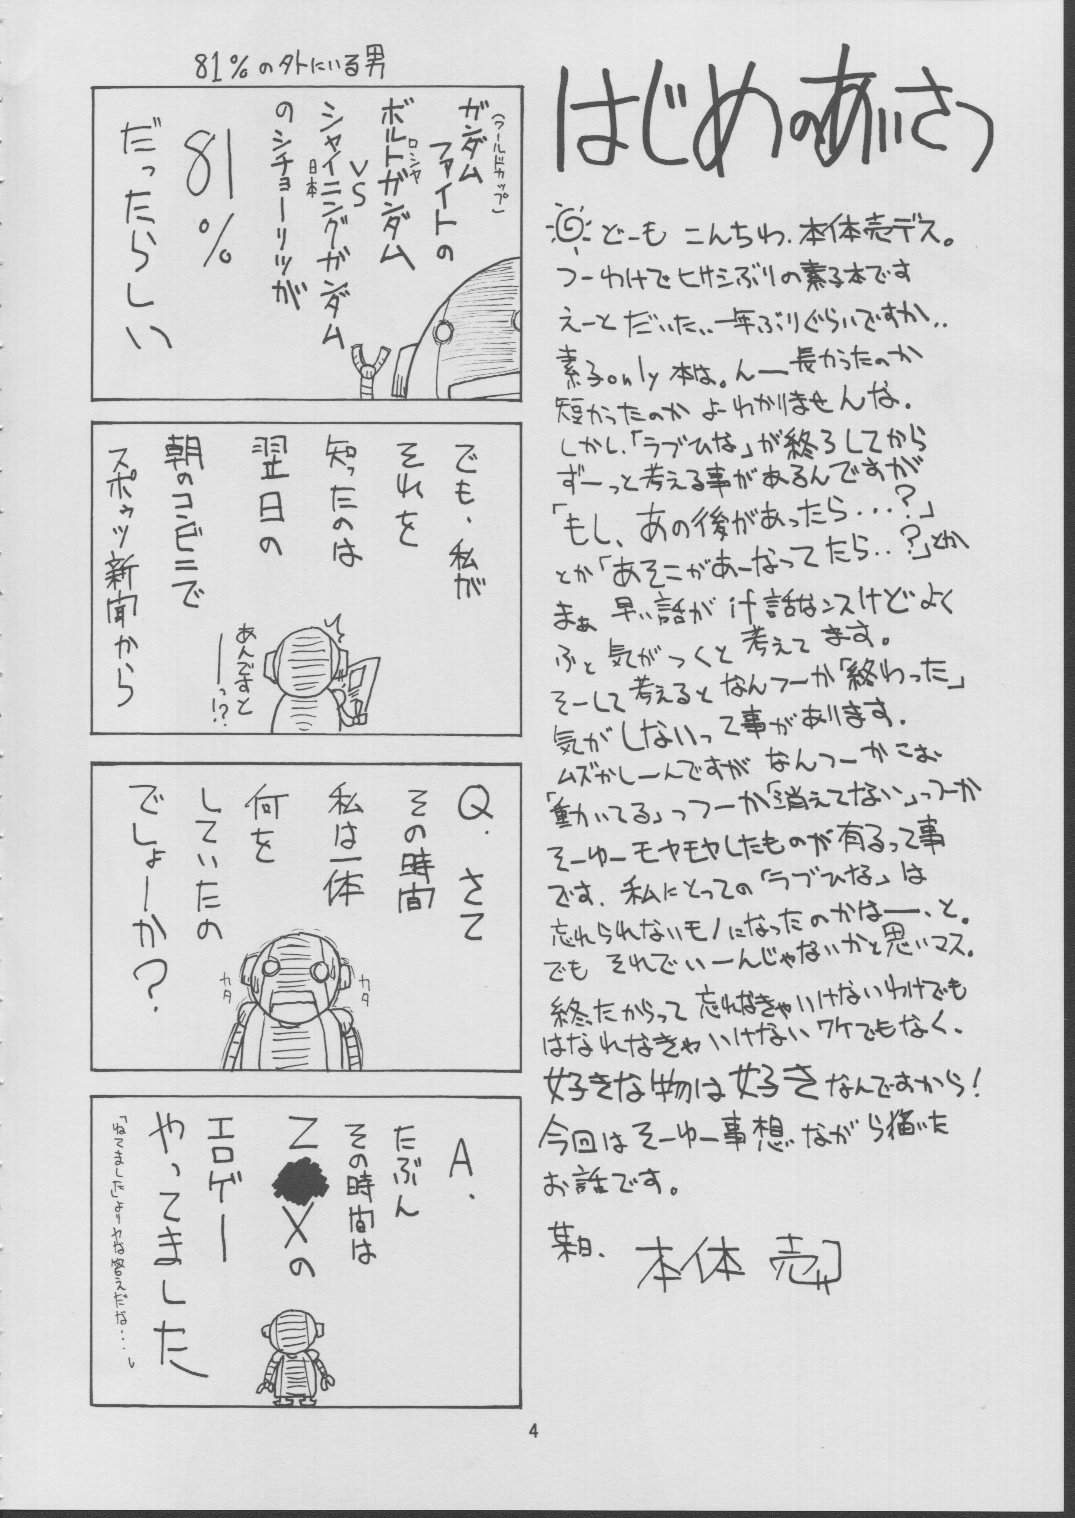 はじめのあいさつ
どーも こんちわ、本体売デス。
つーわけでヒサシぶりの素子本です
えーと だいたい、一年ぶりぐらいですか、、
素子only本は。んー長かったのか
短かったのか よーわかりませんな。
しかし、「ラブひな」が終ろしてから
ずーっと考える事があるんですが
「もし、あの後があったら・・・?」
とか「あそこがあーなってたら・・?」とか
まぁ 早い話が if話なンスけど よく
ふと 気がつくと 考えてます。
そーして考えると なんつーか「終わった」
気がしないって事があります。
ムズかしーんですが なんつーか こお
「動いてる」っつーか「消えてない」っつーか
そーゆーモヤモヤしたものが有るって事
です。私にとっての「ラブひな」は
忘れられないモノになったのかはー、と。
でも それで いーんじゃないかと思いマス。
終ったからって 忘れなきゃいけないわけでも
はなれなきゃいけないワケでもなく、
好きな物は好きなんですから!
今回は そーゆー事想いながら描いた
お話です。
某日、 本体 売
81%の外にいる男
ガンダム
(ワールドカップ)
ファイトの
ボルトガンダム
ロシヤ
VS
シャイニングガンダム
日本
のシチョーリツが
81%
だったらしい
でも、私が
それを
知ったのは
翌日の
朝のコンビニで
スポーツ新聞から
あんですと
ーっ!?
Q.さて
その時間
私は一体
何を
していたの
でしょーか?
カタ
カタ
A.
たぶん
その時間は
Z Xの
エロゲー
やってました
「ねてました」よりヤな答えだな・・・」
4